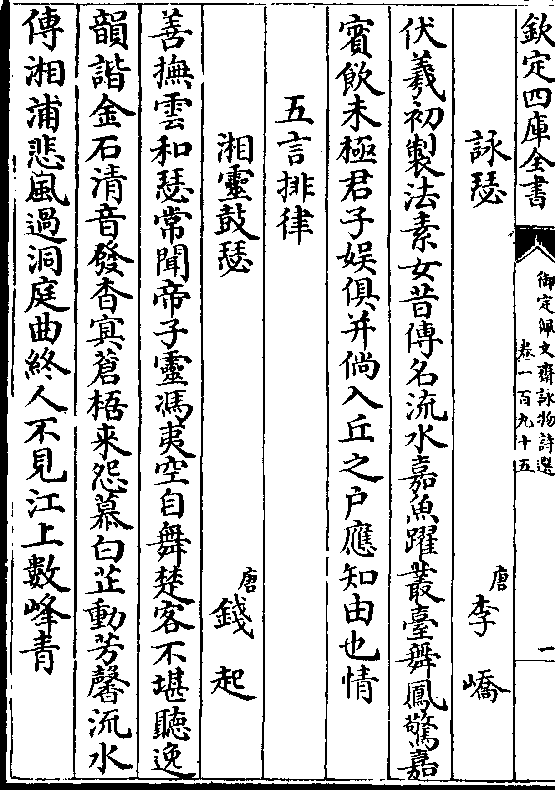 欽定四庫全書
御定佩文齋詠物詩選
卷一百九十五
一
詠瑟
唐李嶠
伏羲初製法素女昔傳名流水嘉魚躍叢臺舞鳳驚嘉
賓飲未極君子娱俱并倘入丘之户應知由也情
五言排律
湘靈鼓瑟
唐錢起
善撫雲和瑟常聞帝子靈馮夷空自舞楚客不堪聽逸
韻諧金石清音發杳㝠蒼梧来怨慕白芷動芳馨流水
傳湘浦悲風過洞庭曲終人不見江上數峰青